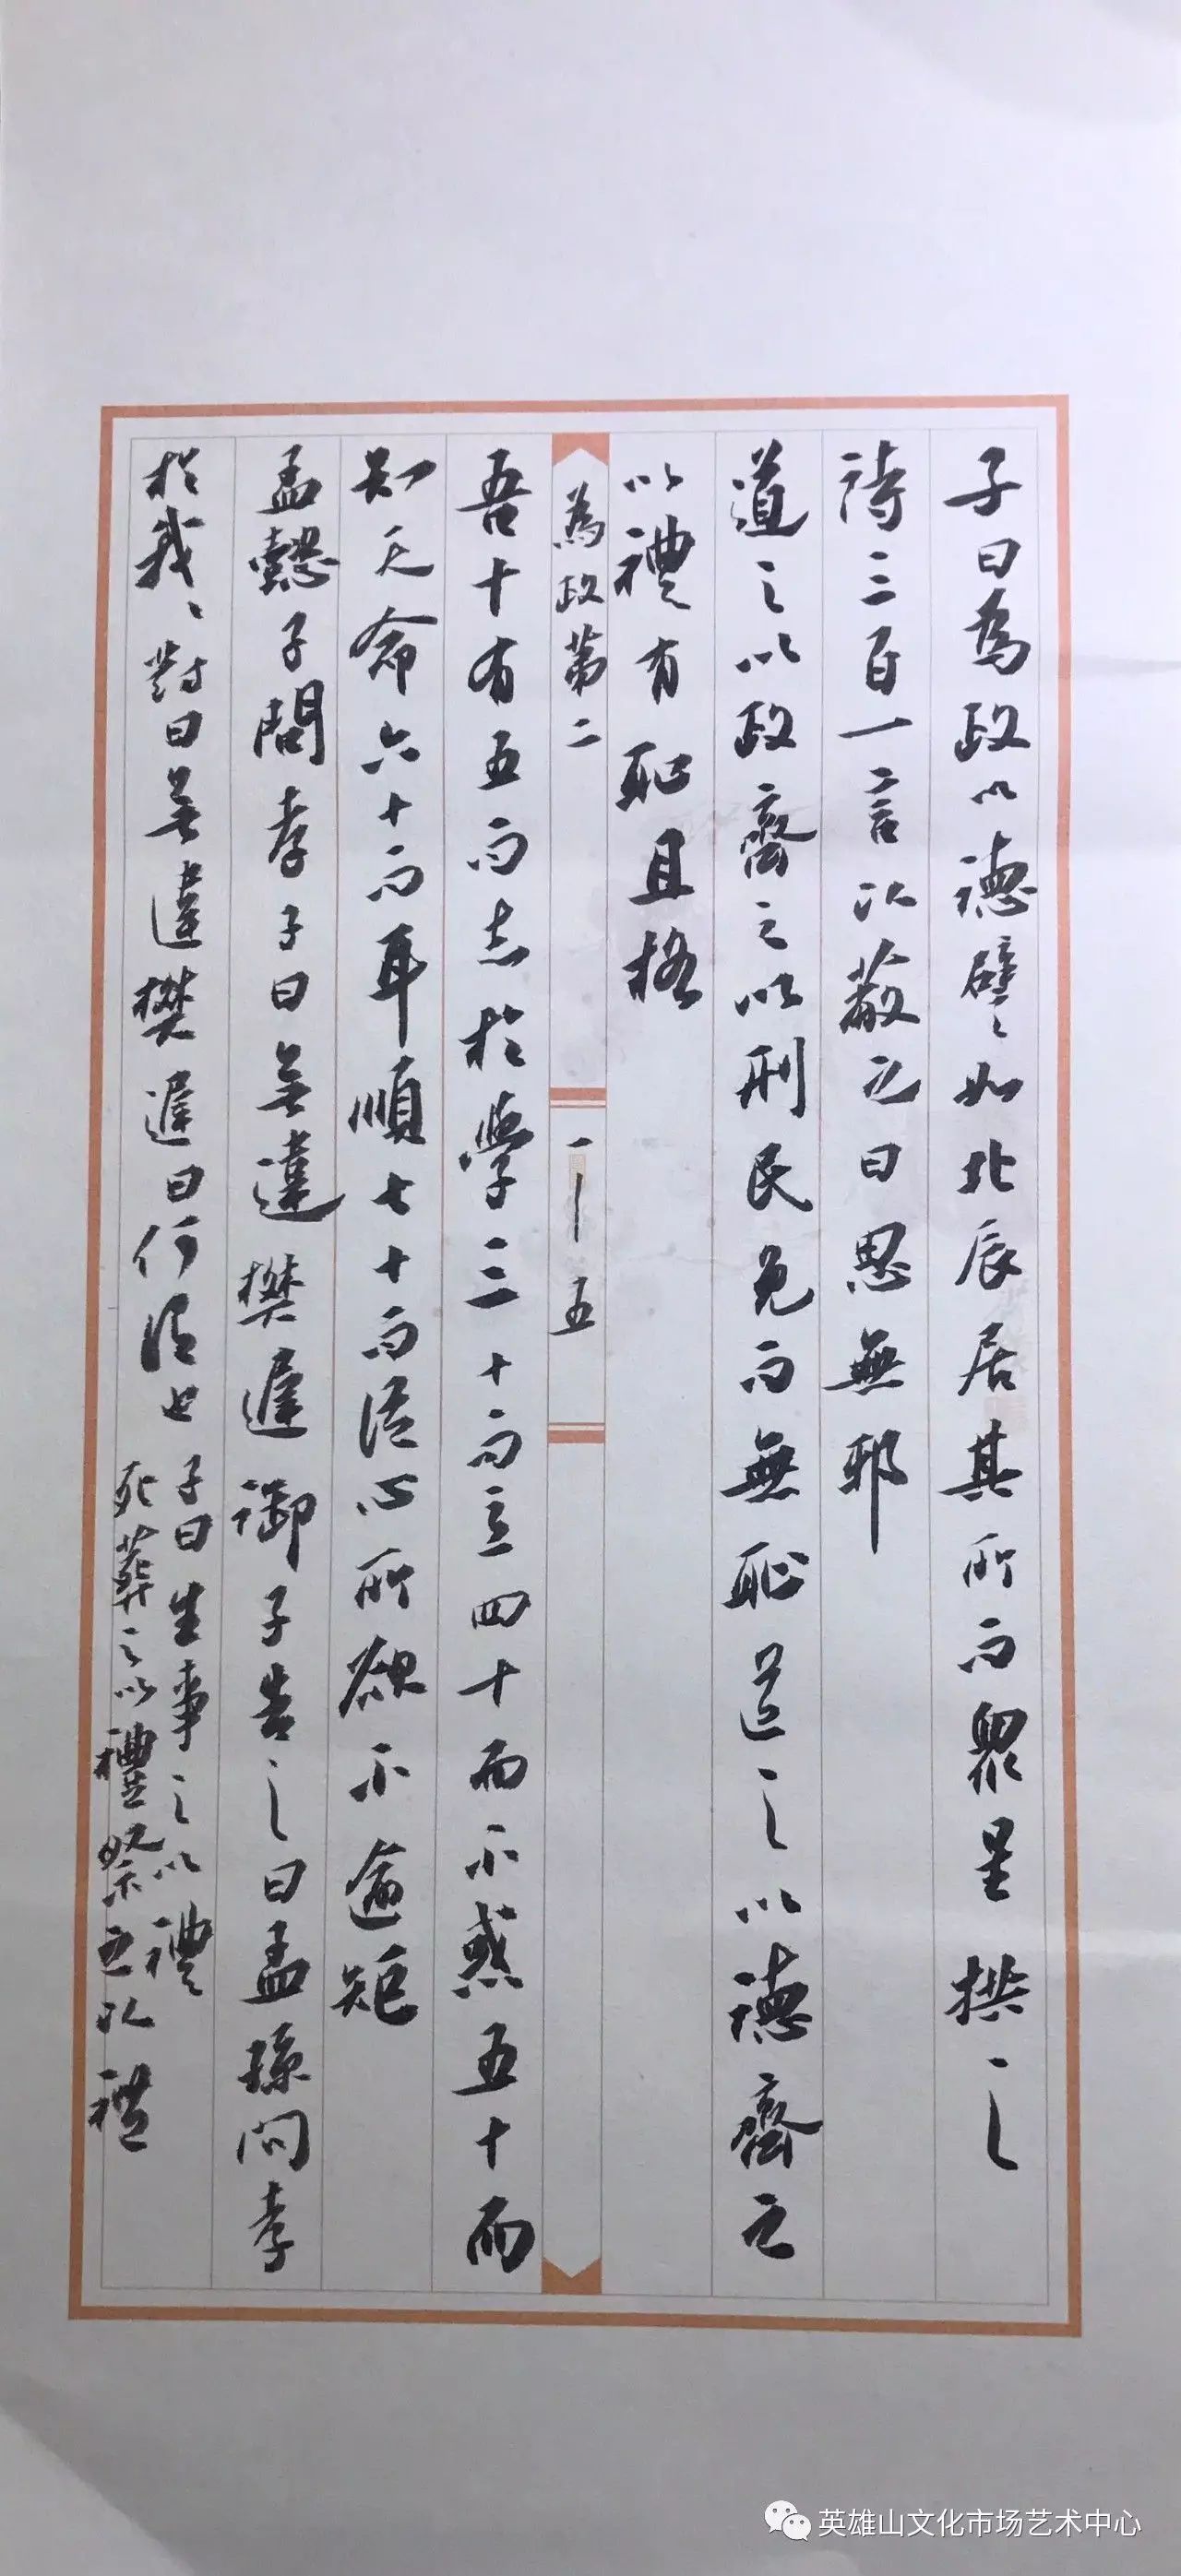 子曰為政以德譬之如北辰居其所而眾星拱之
詩三百一言以蔽之曰思無邪
道之以政齊之以刑民免而無恥道之以德齊之
以禮有恥且格
為政第二
一 — 五
吾十有五而志於學三十而立四十而不惑五十而
知天命六十而耳順七十而從心所欲不逾矩
孟懿子問孝子曰無違樊遲御子告之曰孟孫問孝
於我〻對曰無違樊遲曰何謂也
子曰生事之以禮
死葬之以禮祭之以禮
英雄山文化市场艺术中心